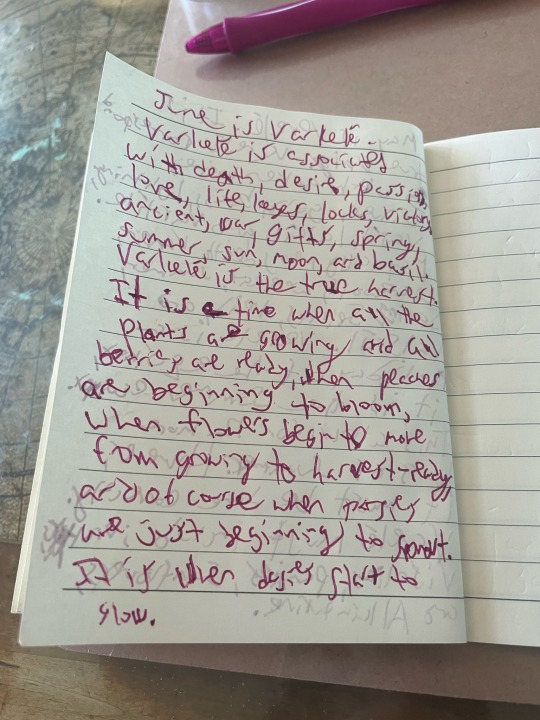 June is Varkelë.
Varkelë is associates
with death, desire, passion,
love, life, keyes, locks, victory,
ancient, war, gifts, spring,
summer, sun, moon, and basil.
Varkelë is the true harvest.
It is a time when all the
plants are growing and all
berries are ready, when peaches
are beginning to bloom,
when flowers begin to move
from growing to harvest-ready,
and of corse when
are just beginning to sprout.
It is when start to
slow.